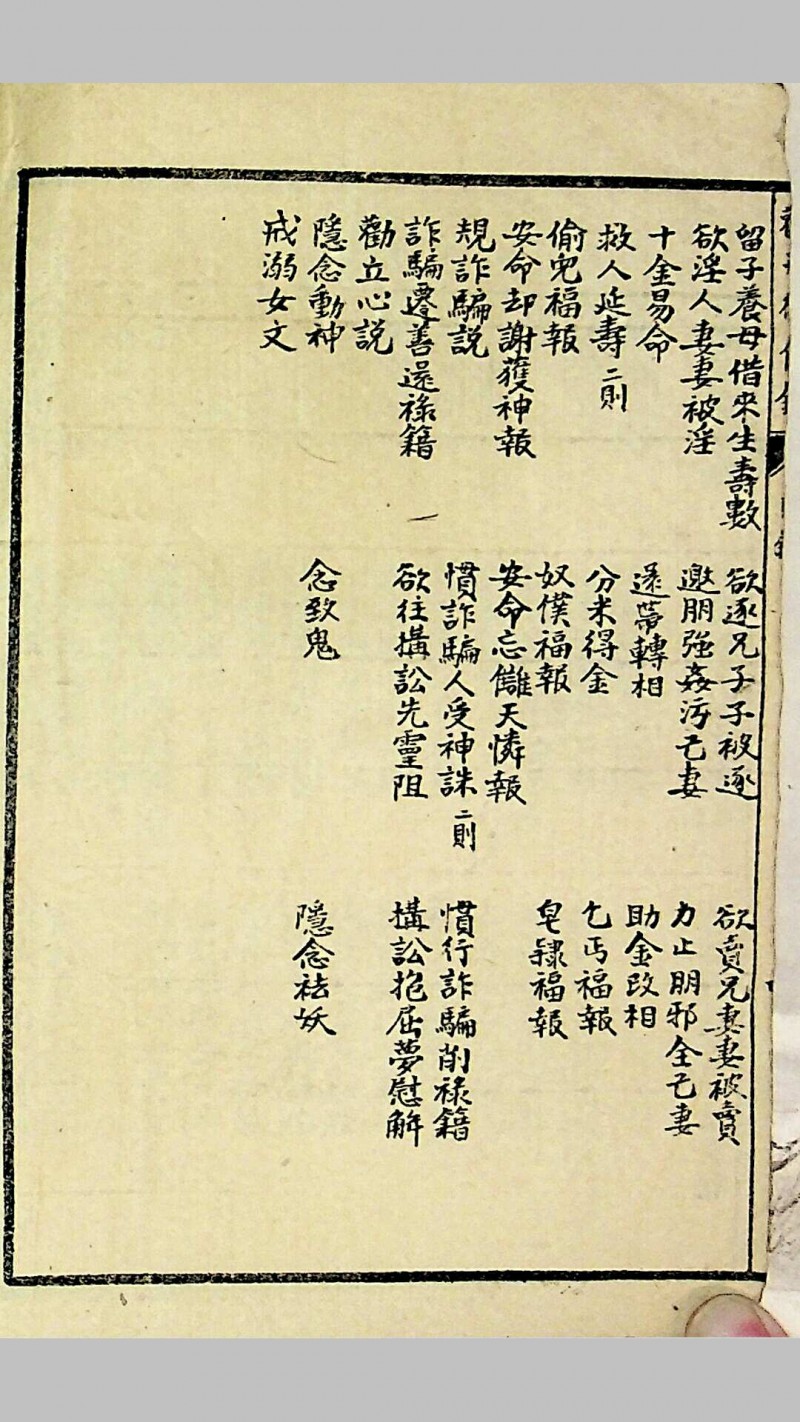 留子養母借來生壽數
欲逐兄子子被逐
欲賣兄妻妻被賣
欲淫人妻妻被淫
邀朋強姦污己妻
力止朋邪全己妻
十金易命
還帶轉相
助金改相
救人延壽二則
分米得金
乞丐福報
偷兒福報
奴僕福報
皂隸福報
安命却謝獲神報
安命忘讎天憐報
規詐騙説
慣詐騙人受神誅二則
慣行詐騙削祿籍
詐騙遷善還祿籍
欲往搆訟先靈阻
搆訟抱屈夢慰解
勸立心説
隱念動神
念致鬼
隱念祛妖
戒溺女文